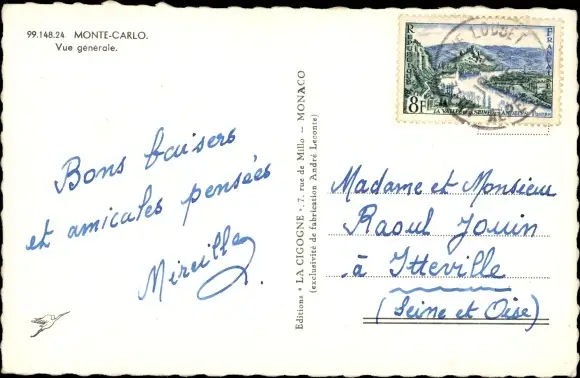 99.148.24 MONTE-CARLO.
Vue generale.
Bons baisers
et amicales pensées
Mireille
Editions • LA CIGOGNE • 7, rue de Millo — MONACO
(exclusivité de fabrication André Leconte)
REPUBLIQUE
FRANÇAISE
8F
LA VALLÉE DE LA SEINE AUX ANDELYS
LOUBET
Madame et Monsieur
Raoul Jouin
à Itteville
(Seine et Oise)